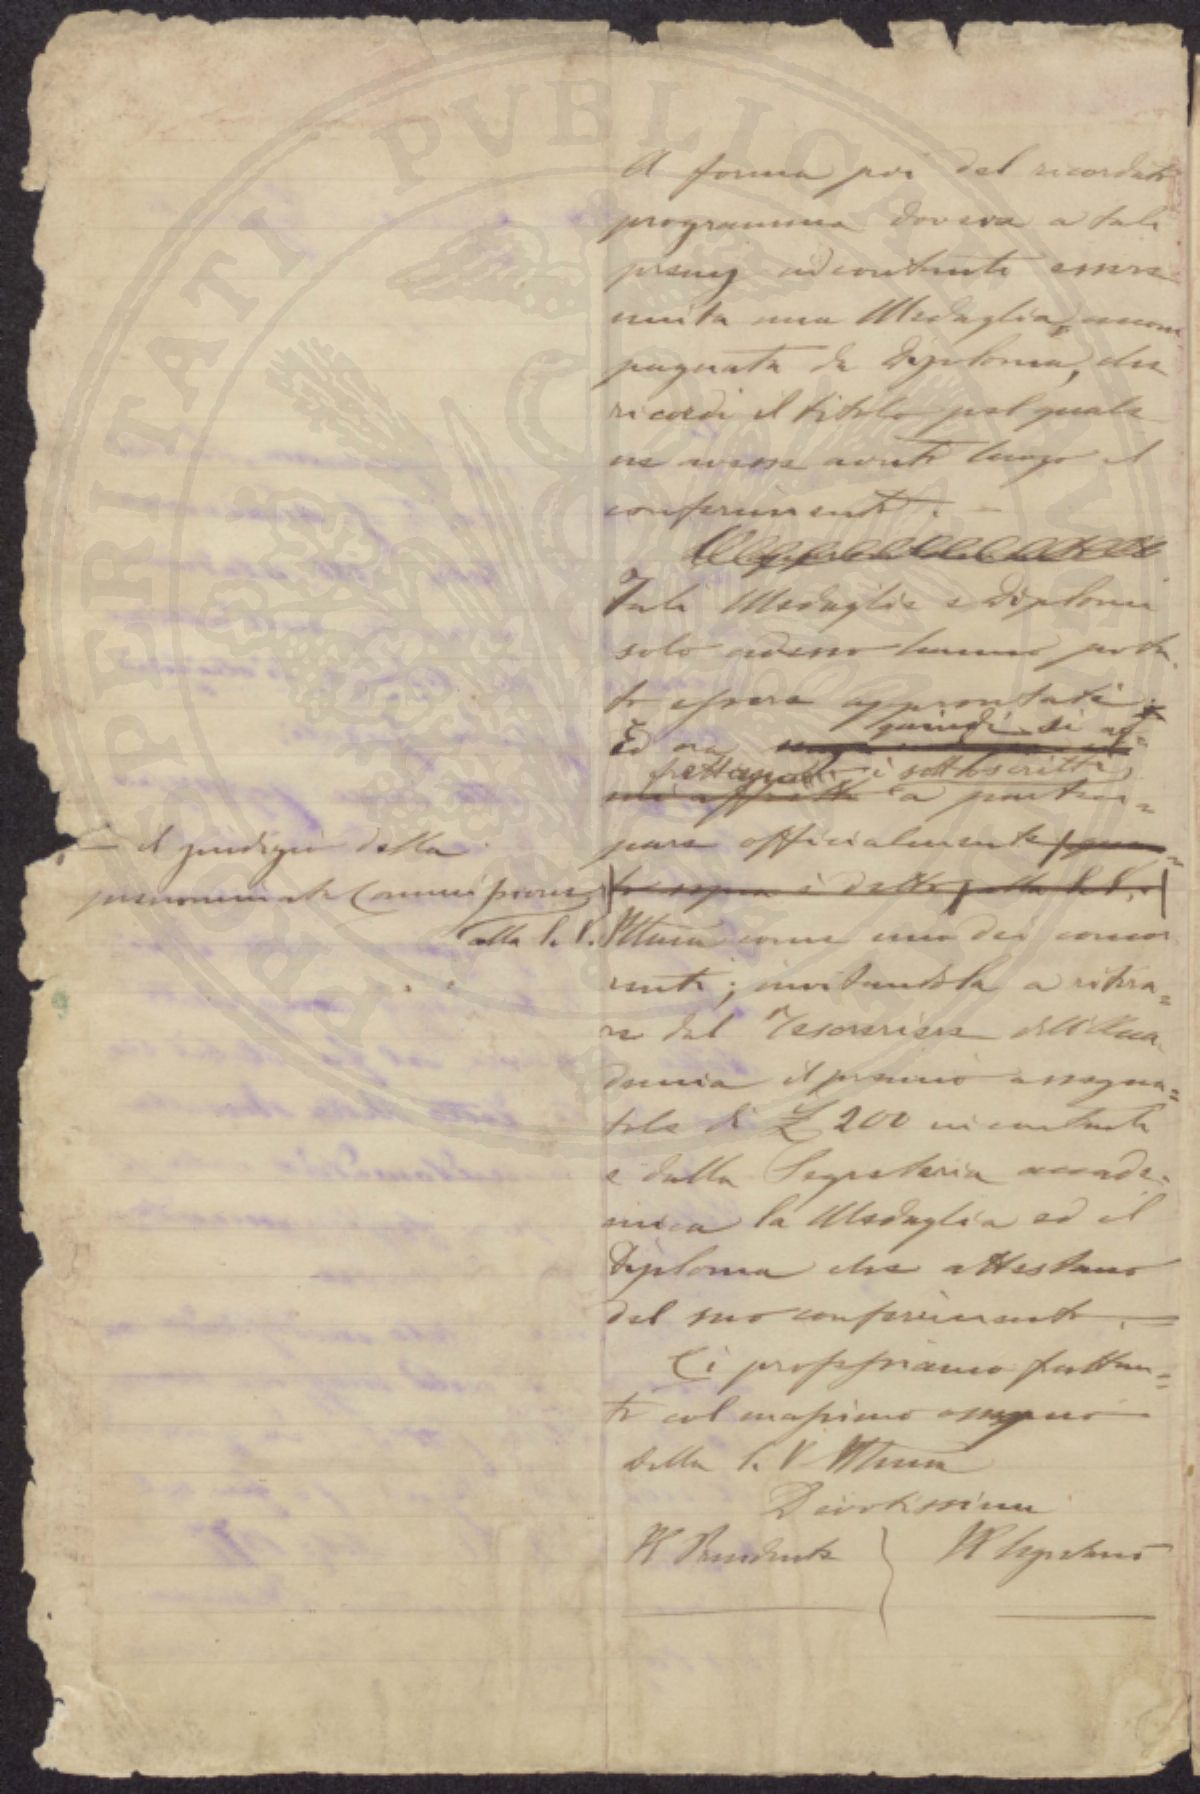 A forma poi del ricordato
programma doveva a tali
premj in contanti essere
unita una Medaglia, accom
pagnata da Diploma, che
ricordi il titolo pel quale
ne avesse avuto luogo il
conferimento. –
Tali Medaglie e Diplomi
solo adesso hanno potu
to essere approntati;
Ed ora
quindi si af=
frettano i sottoscritti
mi affretto a parteci=
pare officialmente
il giudizio della
prenominata Commissione
alla S. V.
to sopra è detto alla S. V.
Illma come uno dei concor
renti; invitandola a ritira=
re dal Tesoriere dell'Acca
demia il premio assegna=
tole di £ 200 in contanti
e dalla Segreteria accade=
mica la Medaglia ed il
Diploma che attestano
del suo conferimento. =
Ci professiamo frattan=
to col massimo ossequio
Della S. V. Illma
Devotissimi
Il Presidente Il Segretario
PERITATI PVBLICAE